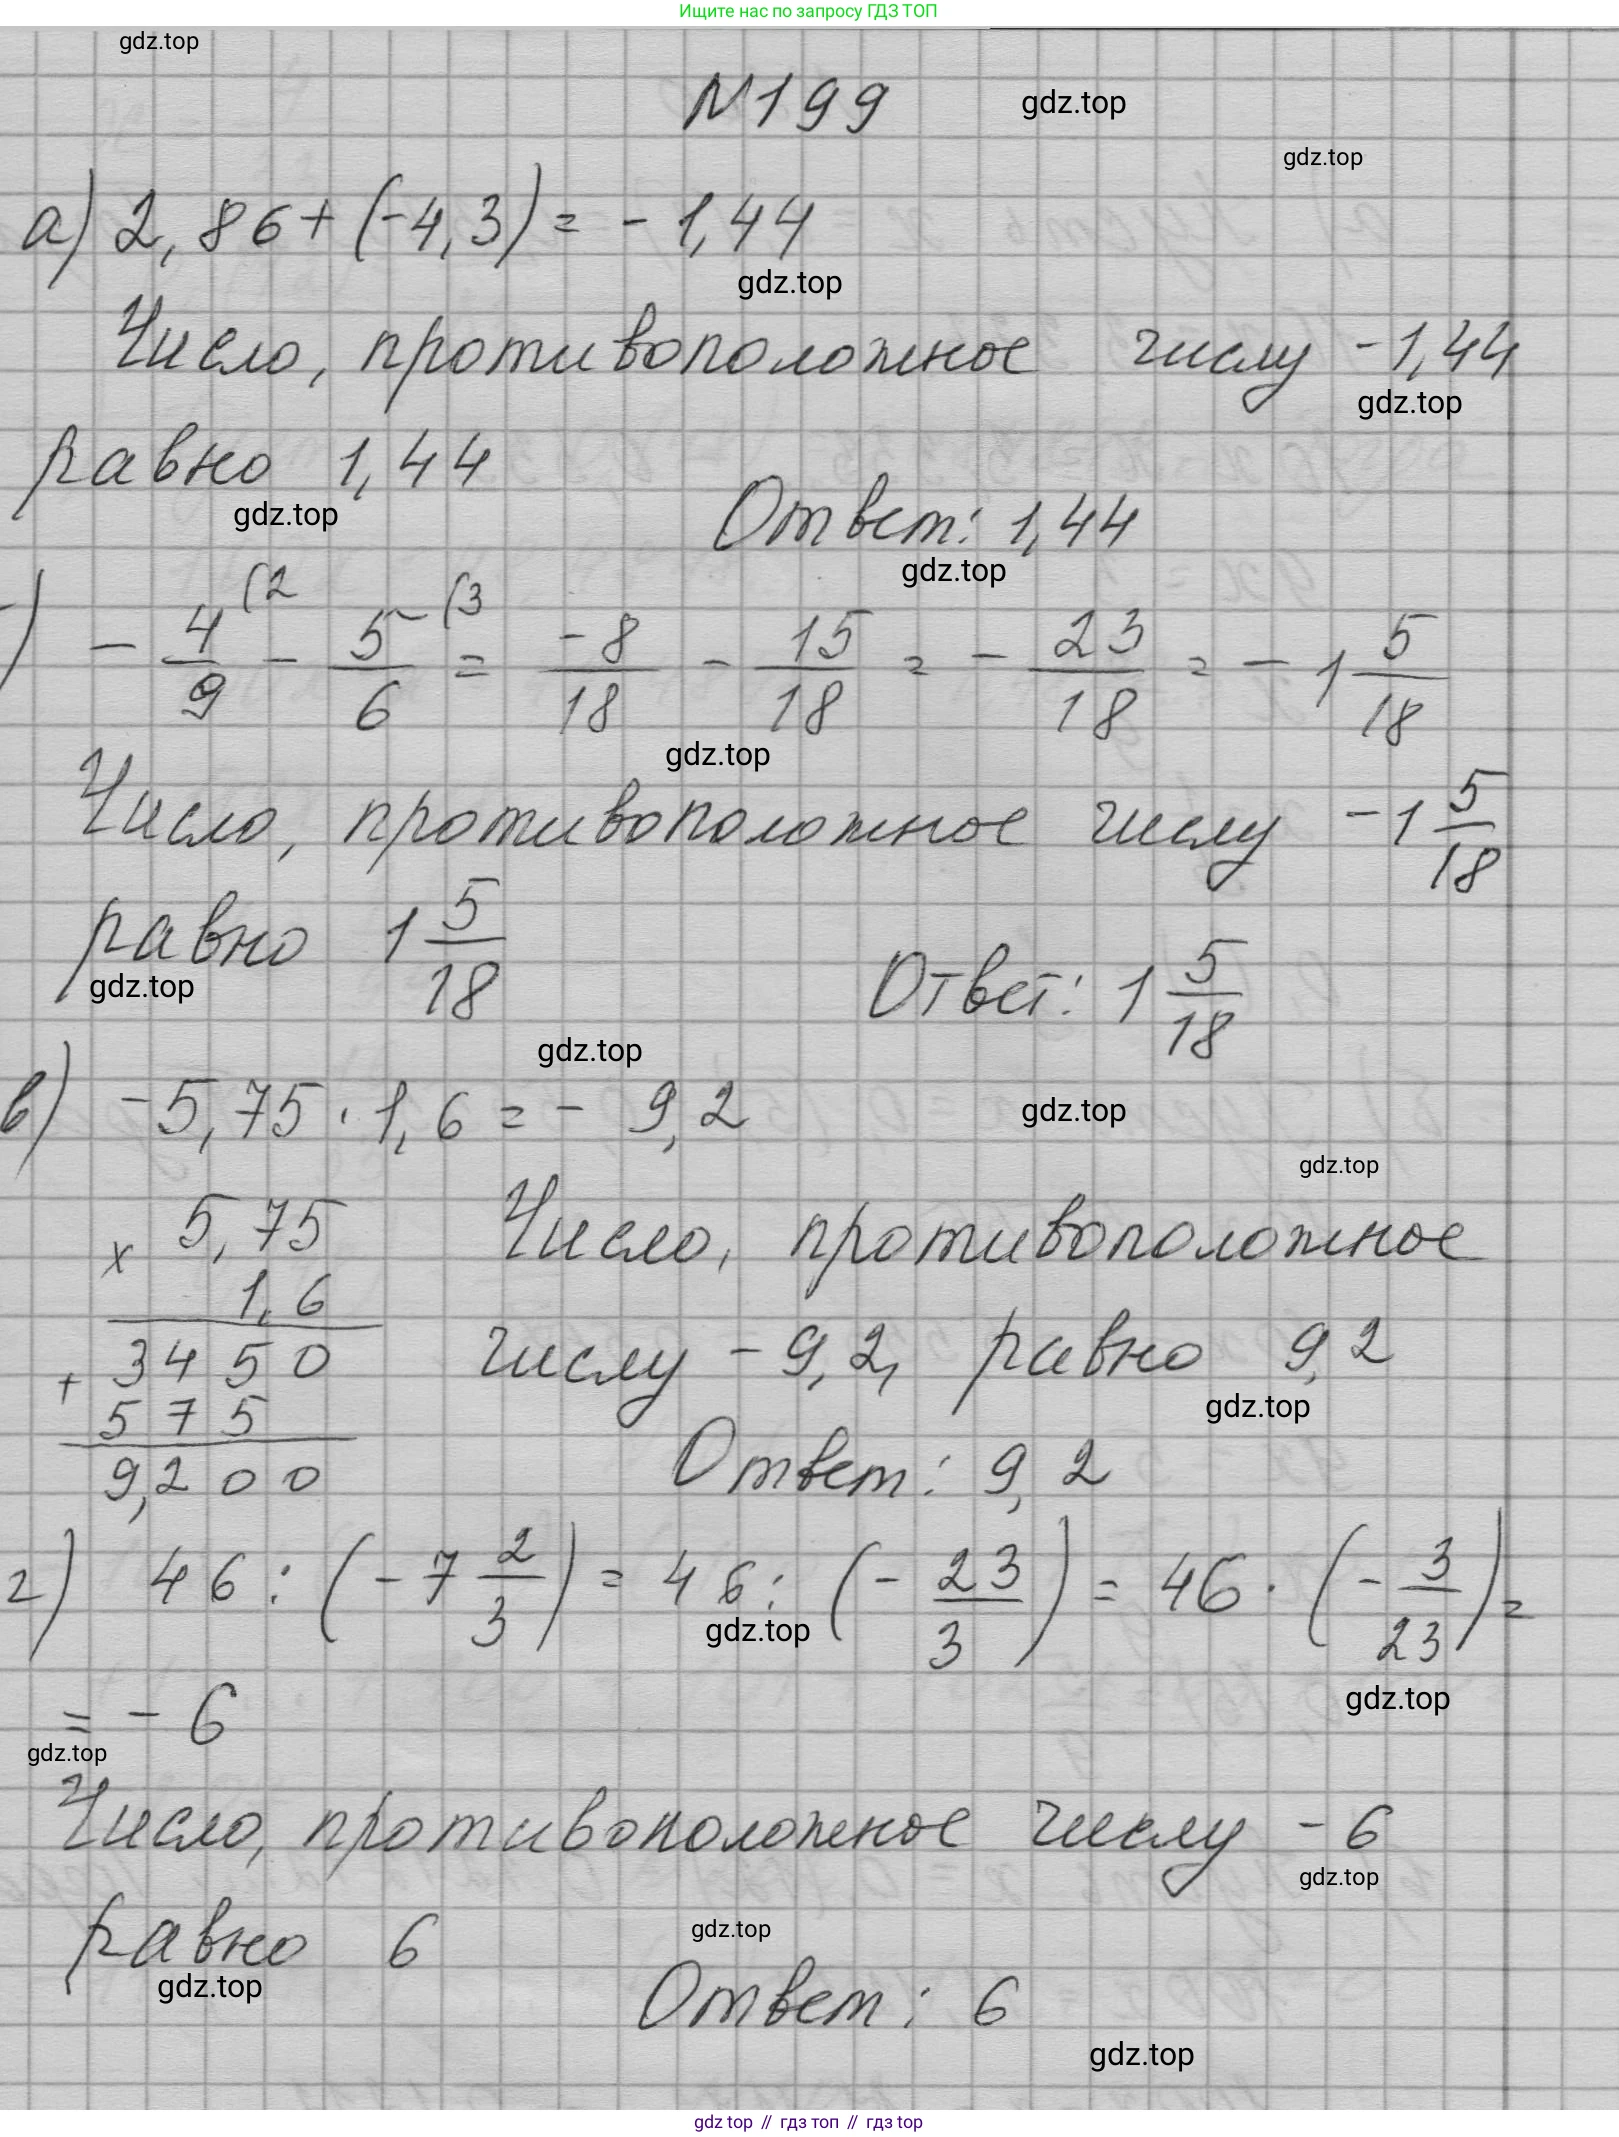 Ищите нас по запросу ГДЗ ТОП
gdz.top
N199
gdz.top
gdz.top
а) 2,86 + (-4,3) = - 1,44
gdz.top
Число, противоположное числу -1,44
gdz.top
равно 1,44
gdz.top
Ответ: 1,44
gdz.top
) - 4/9 (2 - 5/6 (3 = -8/18 - 15/18 = - 23/18 = - 1 5/18
gdz.top
Число, противоположное числу -1 5/18
равно 1 5/18
gdz.top
Ответ: 1 5/18
gdz.top
в) -5,75 · 1,6 = - 9,2
gdz.top
gdz.top
х 5,75
1,6
3450
+ 575
9,200
Число, противоположное
числу -9,2, равно 9,2
gdz.top
Ответ: 9,2
г) 46 : (-7 2/3) = 46 : (- 23/3) = 46 · (- 3/23) =
gdz.top
gdz.top
= - 6
gdz.top
Число, противоположное числу -6
gdz.top
равно 6
gdz.top
gdz.top
Ответ: 6
gdz.top
gdz top // гдз топ // гдз top